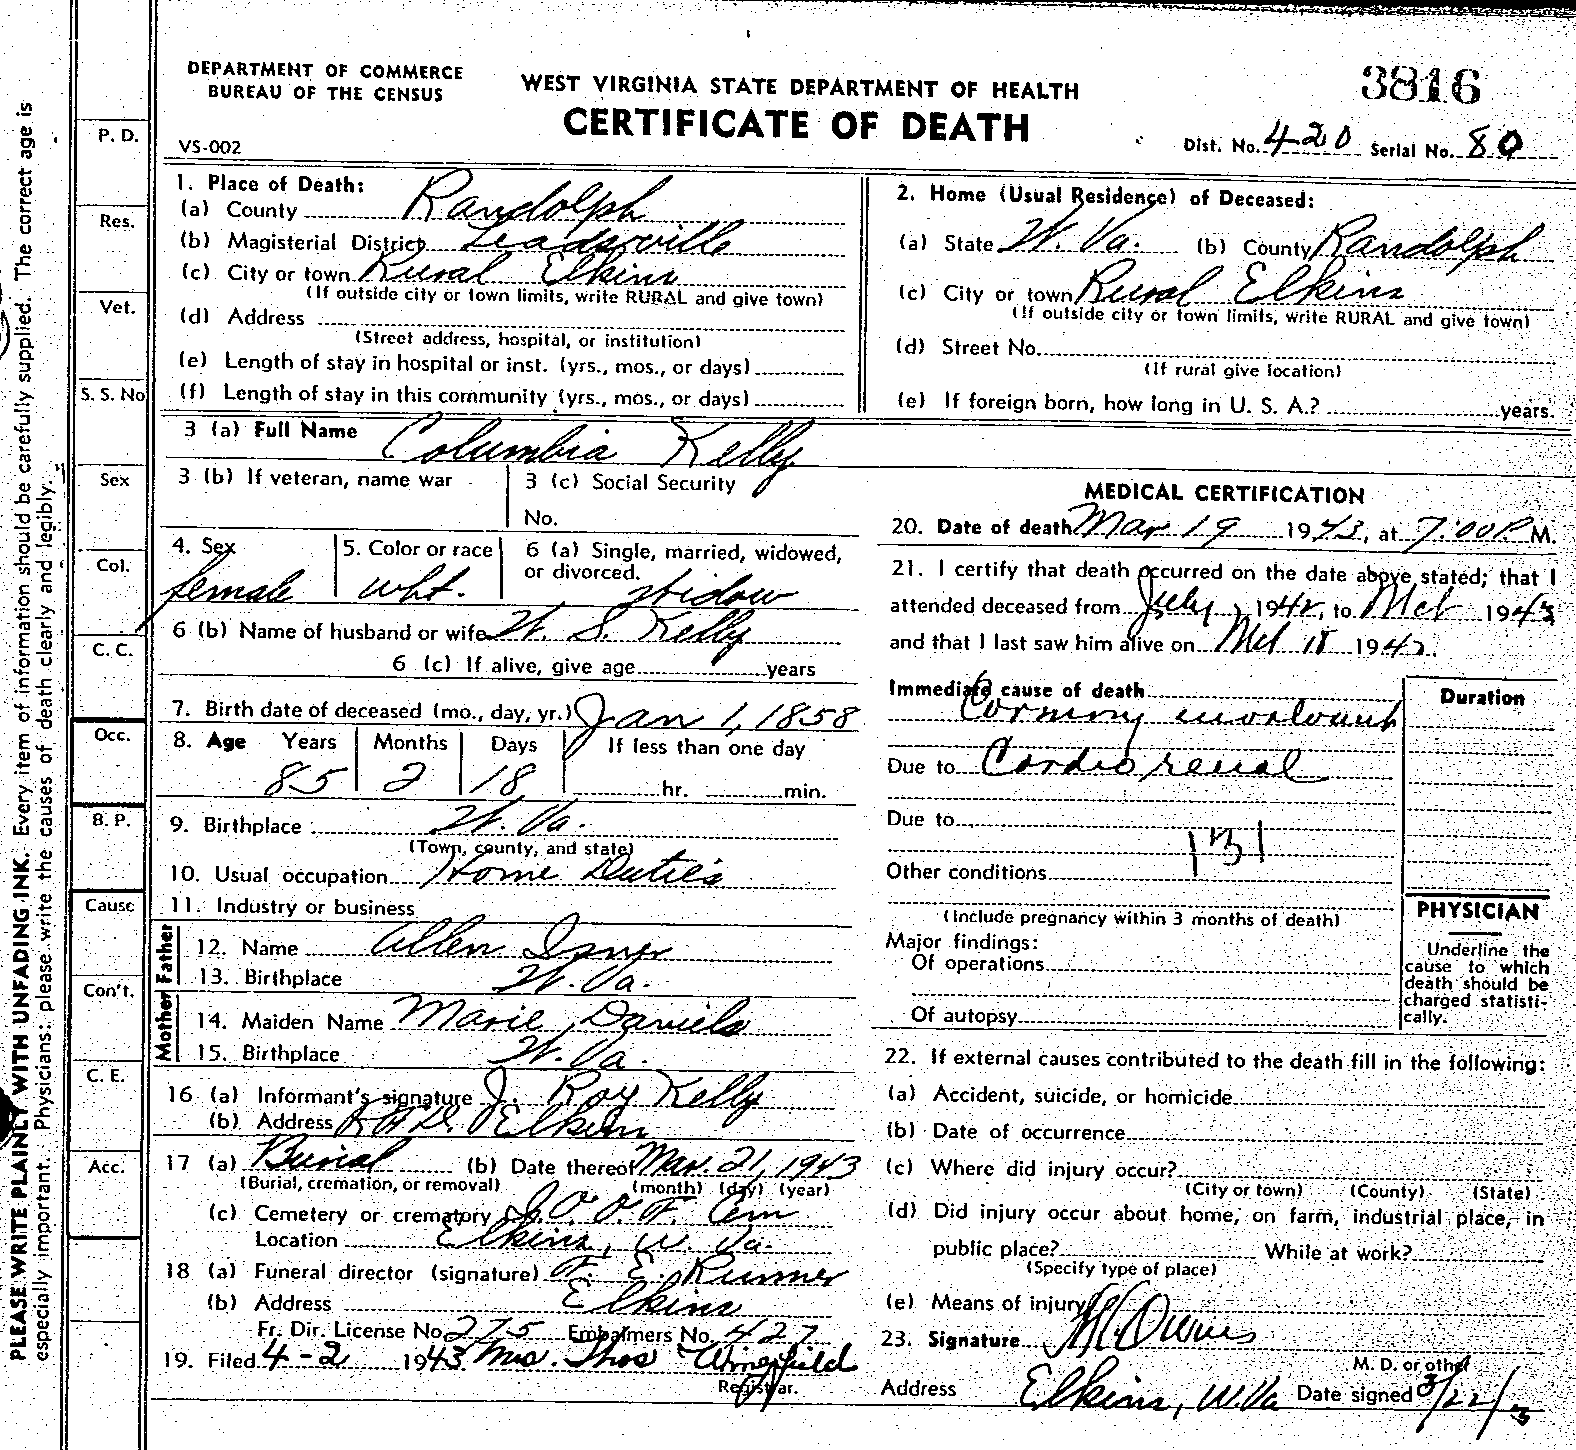 PLEASE WRITE PLAINLY WITH UNFADING INK. Every item of information should be carefully supplied. The correct age is
especially important. Physicians: please write the causes of death clearly and legibly.
P. D.
Res.
Vet.
S. S. No
Sex
Col.
C. C.
Occ.
B. P.
Cause
Con't.
C. E.
Acc.
DEPARTMENT OF COMMERCE
BUREAU OF THE CENSUS
VS-002
WEST VIRGINIA STATE DEPARTMENT OF HEALTH
CERTIFICATE OF DEATH
3816
Dist. No. 420 Serial No. 80
1. Place of Death:
(a) County Randolph
(b) Magisterial District Leadsville
(c) City or town Rural Elkins
(If outside city or town limits, write RURAL and give town)
(d) Address
(Street address, hospital, or institution)
(e) Length of stay in hospital or inst. (yrs., mos., or days)
(f) Length of stay in this community (yrs., mos., or days)
2. Home (Usual Residence) of Deceased:
(a) State W. Va. (b) County Randolph
(c) City or town Rural Elkins
(If outside city or town limits, write RURAL and give town)
(d) Street No.
(If rural give location)
(e) If foreign born, how long in U. S. A.? years.
3 (a) Full Name Columbia Kelly
3 (b) If veteran, name war
3 (c) Social Security
No.
4. Sex female
5. Color or race wht.
6 (a) Single, married, widowed,
or divorced. widow
6 (b) Name of husband or wife W. S. Kelly
6 (c) If alive, give age years
7. Birth date of deceased (mo., day, yr.) Jan 1, 1858
8. Age Years Months Days If less than one day
85 2 18 hr. min.
9. Birthplace W. Va.
(Town, county, and state)
10. Usual occupation Home Duties
11. Industry or business
Father
12. Name Allen Isner
13. Birthplace W. Va.
Mother
14. Maiden Name Marie Daniels
15. Birthplace W. Va.
16 (a) Informant's signature J. Roy Kelly
(b) Address Elkins
17 (a) Burial (b) Date thereof Mar. 21, 1943
(Burial, cremation, or removal) (month) (day) (year)
(c) Cemetery or crematory I. O. O. F. Cem
Location Elkins, W. Va.
18 (a) Funeral director (signature) F. E. Runner
(b) Address Elkins
Fr. Dir. License No. 275 Embalmers No. 427
19. Filed 4-2 1943 Mrs. Thos Wingfield
Registrar.
MEDICAL CERTIFICATION
20. Date of death Mar 19 1943, at 7:00 P M.
21. I certify that death occurred on the date above stated; that I
attended deceased from July, 1942, to Mch 1943
and that I last saw him alive on Mch 18 194
Immediate cause of death
Duration
Due to Cardio renal
Due to
131
Other conditions
(Include pregnancy within 3 months of death)
Major findings:
Of operations
Of autopsy
PHYSICIAN
Underline the
cause to which
death should be
charged statisti-
cally.
22. If external causes contributed to the death fill in the following:
(a) Accident, suicide, or homicide
(b) Date of occurrence
(c) Where did injury occur?
(City or town) (County) (State)
(d) Did injury occur about home, on farm, industrial place, in
public place? While at work?
(Specify type of place)
(e) Means of injury
23. Signature
M. D. or other
Address Elkins, W. Va Date signed 3/22/3